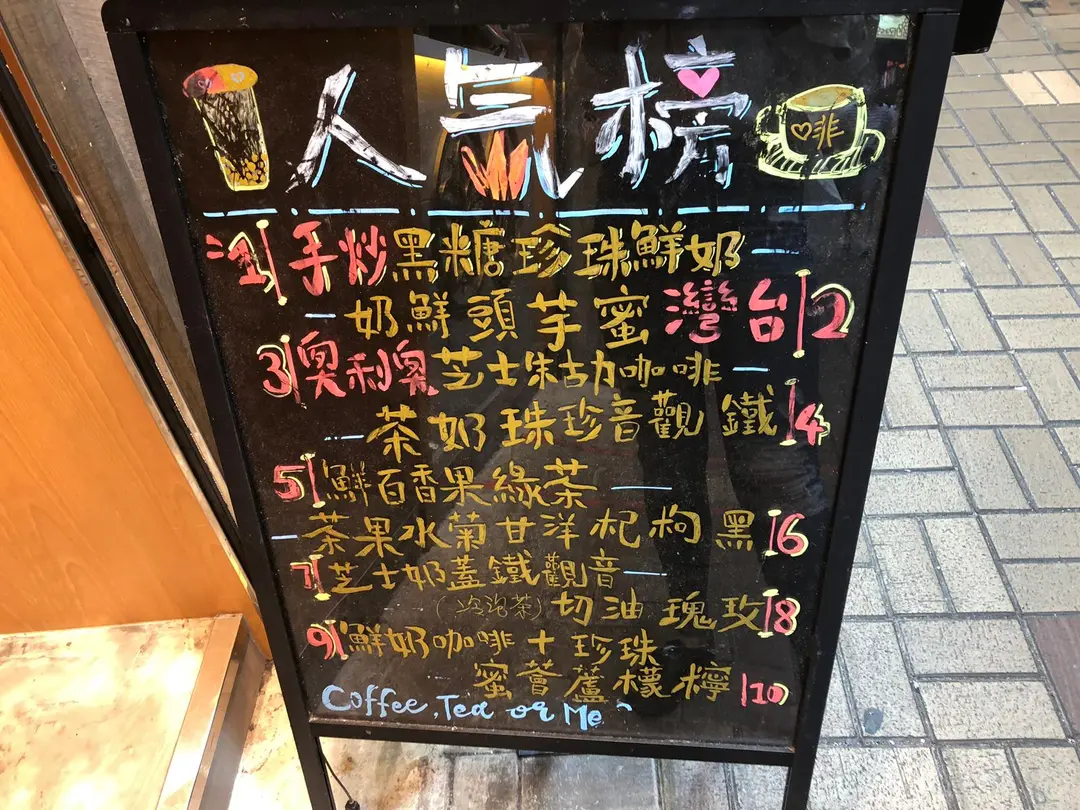 人氣榜
啡
1 手炒黑糖珍珠鮮奶
2 台灣蜜芋頭鮮奶
3 奧利奧芝士朱古力咖啡
4 鐵觀音珍珠奶茶
5 鮮百香果緣茶
6 黑枸杞洋甘菊水果茶
7 芝士奶蓋鐵觀音
8 玫瑰油切(冷泡茶)
9 鮮奶咖啡+珍珠
10 檸檬蘆薈蜜
Coffee, Tea or Me~